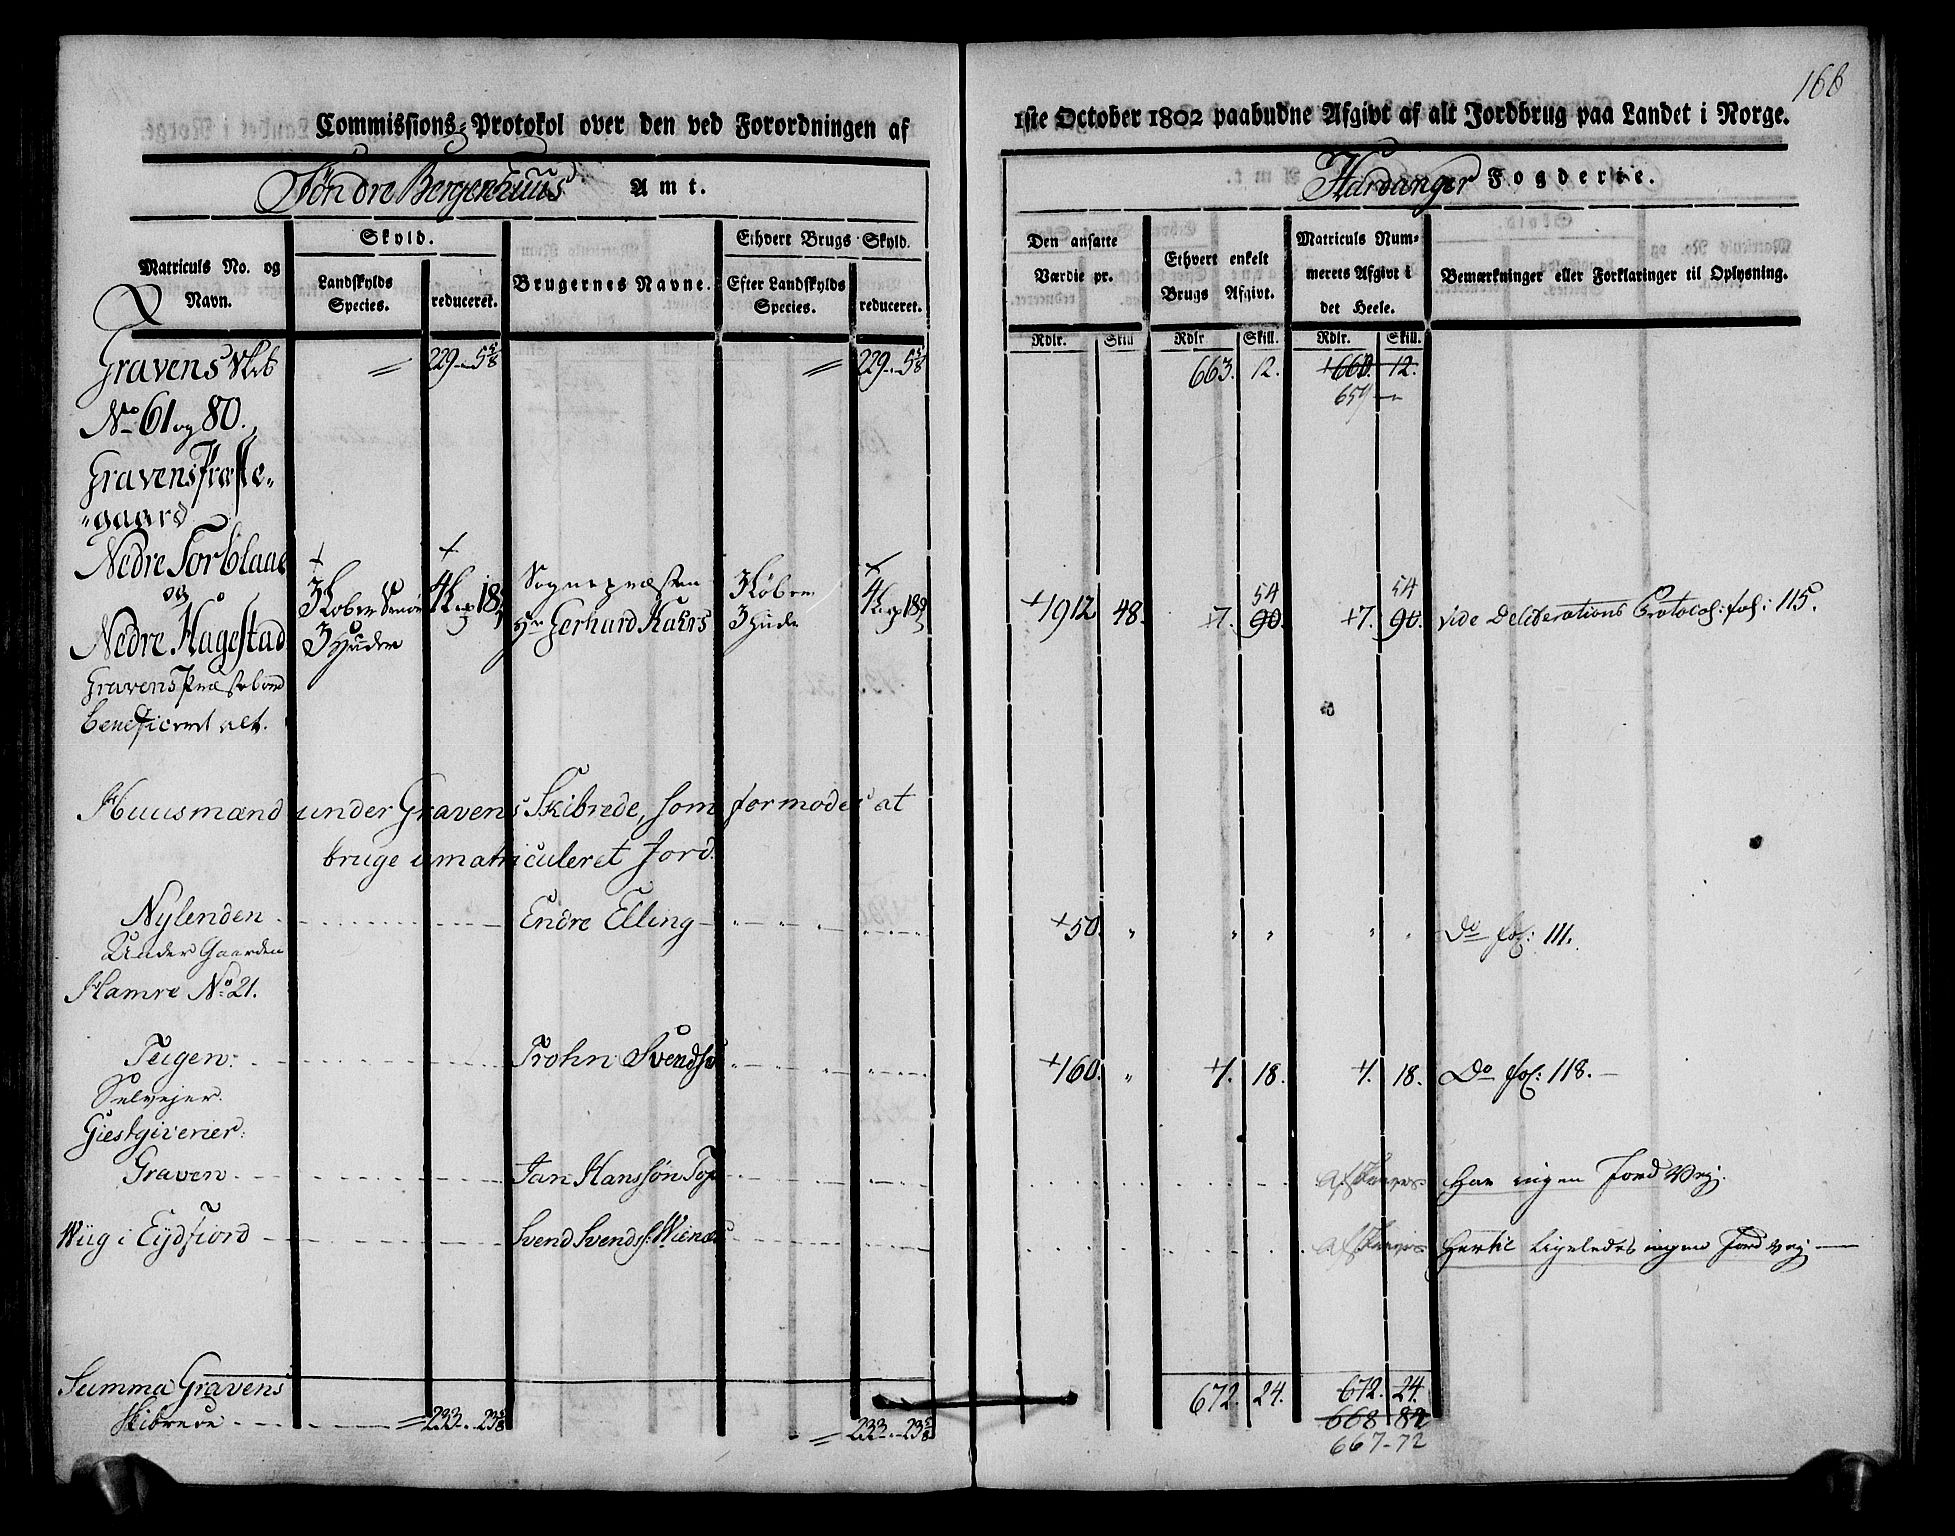 168
Commissions-Protokol over den ved Forordningen af 1ste October 1802 paabudne Afgivt af alt Jordbrug paa Landet i Norge.
Søndre Bergenhuus Amt. Hardanger Fogderie.
Matriculs No. og Navn.
Skyld.
Landskylds Species.
reduceret.
Brugernes Navne.
Ethvert Brugs Skyld.
Efter Landskylds Species.
reduceret.
Den ansatte Værdie pr.
Ethvert enkelt Brugs Afgivt.
Matriculs Nummerets Afgivt i det Heele.
Bemærkninger eller Forklaringer til Oplysning.
Rdlr. Skill Rdlr Skill. Rdlr. Skill.
Gravens Skib = 229 - 5 5/8 = 229 - 5 5/8 663. 12. 660. 12.
659 -
No 61 og 80.
Gravens Præste-
"gaard
Nedre Torblaae
og
Nedre Hagestad
Gravens Præstebord
beneficeret alt.
3 Løber Smør
3 Huder
Sognepræsten
Hr Gerhard Kahrs
3 Løber
3 Hude
+1912 48. 7. 54 90. 7. 54 90. vide Deliberations Protocol: fol: 115.
Huusmænd under Gravens Skibrede, som formodes at
bruge umatriculeret Jord.
Nylenden Endre Elling +50. " " " " " Do fol: 111.
Under Gaarden
Hamre No. 21.
Teigen: Trohn Svends +160. " 1. 18. 1. 18. Do fol: 118.
Selvejer.
Giestgiverier:
Graven Jan Hanssøn Har ingen Jord Vej.
Wiig i Eydfiord Svend Svends: Wienæs Hertil ligeledes ingen Jord Vej
Summa Gravens
Skibrede = 233. - 23 5/8 = 233. - 23 5/8 672. 24. 672. 24.
668 - 84
667 - 72